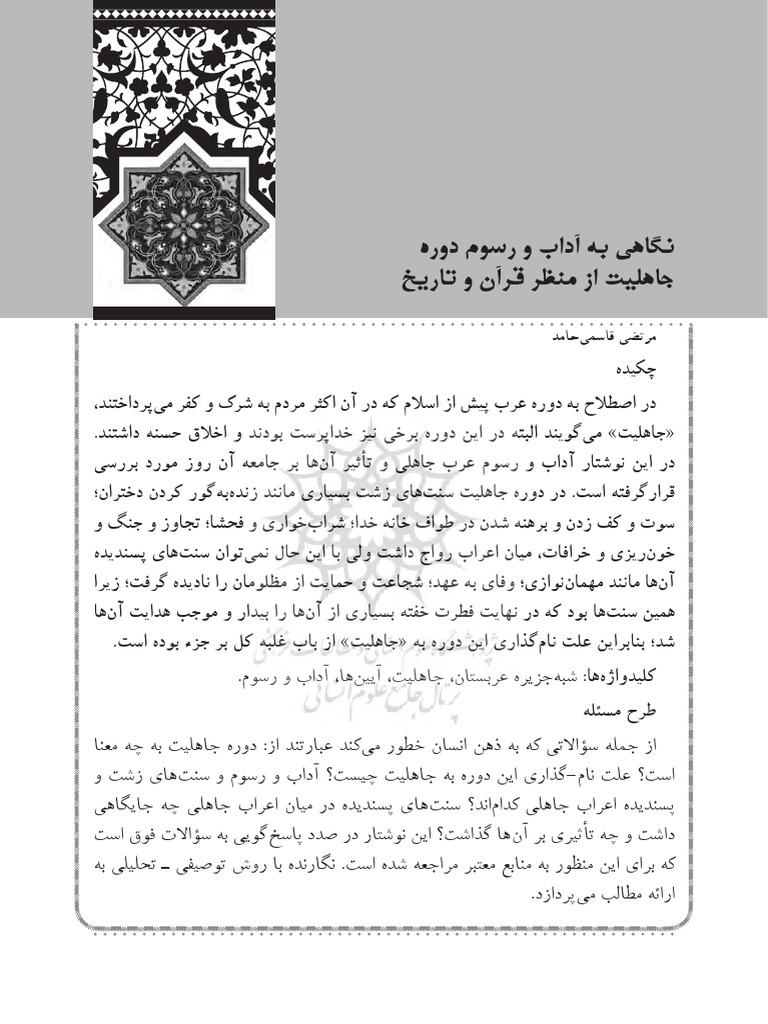 نگاهی به آداب و رسوم دوره
جاهلیت از منظر قرآن و تاریخ
مرتضی قاسمی‌حامد
چکیده
در اصطلاح به دوره عرب پیش از اسلام که در آن اکثر مردم به شرک و کفر می‌پرداختند،
«جاهلیت» می‌گویند البته در این دوره برخی نیز خداپرست بودند و اخلاق حسنه داشتند.
در این نوشتار آداب و رسوم عرب جاهلی و تأثیر آن‌ها بر جامعه آن روز مورد بررسی
قرارگرفته است. در دوره جاهلیت سنت‌های زشت بسیاری مانند زنده‌به‌گور کردن دختران؛
سوت و کف زدن و برهنه شدن در طواف خانه خدا؛ شراب‌خواری و فحشا؛ تجاوز و جنگ و
خون‌ریزی و خرافات، میان اعراب رواج داشت ولی با این حال نمی‌توان سنت‌های پسندیده
آن‌ها مانند مهمان‌نوازی؛ وفای به عهد؛ شجاعت و حمایت از مظلومان را نادیده گرفت؛ زیرا
همین سنت‌ها بود که در نهایت فطرت خفته بسیاری از آن‌ها را بیدار و موجب هدایت آن‌ها
شد؛ بنابراین علت نام‌گذاری این دوره به «جاهلیت» از باب غلبه کل بر جزء بوده است.
کلیدواژه‌ها: شبه‌جزیره عربستان، جاهلیت، آیین‌ها، آداب و رسوم.
پژوهشگاه علوم انسانی و مطالعات فرهنگی
پرتال جامع علوم انسانی
طرح مسئله
از جمله سؤالاتی که به ذهن انسان خطور می‌کند عبارتند از: دوره جاهلیت به چه معنا
است؟ علت نام-گذاری این دوره به جاهلیت چیست؟ آداب و رسوم و سنت‌های زشت و
پسندیده اعراب جاهلی کدام‌اند؟ سنت‌های پسندیده در میان اعراب جاهلی چه جایگاهی
داشت و چه تأثیری بر آن‌ها گذاشت؟ این نوشتار در صدد پاسخ‌گویی به سؤالات فوق است
که برای این منظور به منابع معتبر مراجعه شده است. نگارنده با روش توصیفی ـ تحلیلی به
ارائه مطالب می‌پردازد.